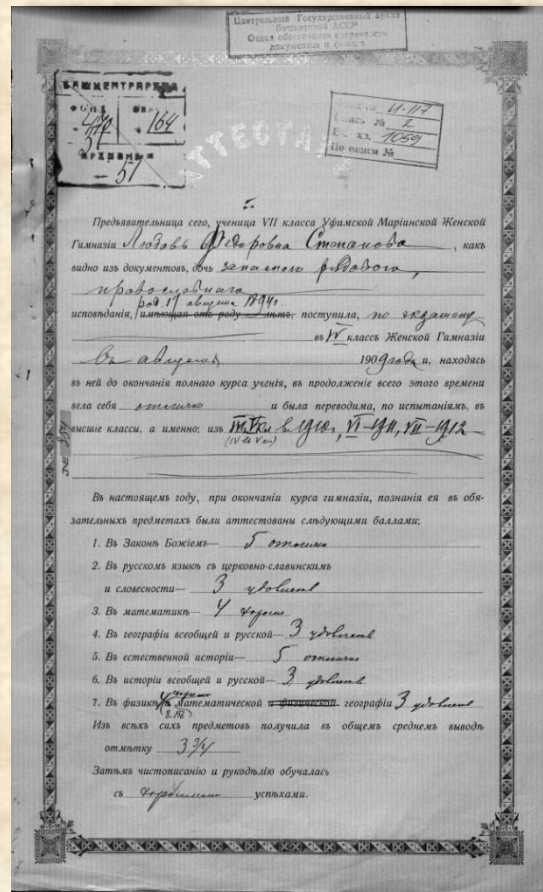 Центральный Государственный архив
Башкирской АССР
Отдел обеспечения сохранности
документов и фондов
БАШЦЕНТРАРХИВ
ФОНД
ОПИСЬ
470
164
АРХИВНЫЙ
51
Фонд № И-117
Опись № 2
Ед. хр. 1059
По описи №
АТТЕСТАТЪ
Предъявительница сего, ученица VII класса Уфимской Маріинской Женской
Гимназіи Любовь Федоровна Степанова, какъ
видно изъ документовъ, дочь запасного рядового,
православнаго
род. 17 августа 1894 г.
исповѣданія, имѣющая отъ роду лѣтъ, поступила, по экзамену
въ IV классъ Женской Гимназіи
въ августѣ 1909 года и, находясь
въ ней до окончанія полнаго курса ученія, въ продолженіе всего этого времени
вела себя отлично и была переводима, по испытаніямъ, въ
высшіе классы, а именно: изъ въ 1910 г., VI-1911, VII-1912
(IV въ V кл)
Въ настоящемъ году, при окончаніи курса гимназіи, познанія ея въ обя-
зательныхъ предметахъ были аттестованы слѣдующими баллами:
1. Въ Законѣ Божіемъ— 5 отлично
2. Въ русскомъ языкѣ съ церковно-славянскимъ
и словесности— 3 удовлетв
3. Въ математикѣ— 4 хорошо
4. Въ географіи всеобщей и русской— 3 удовлетв
5. Въ естественной исторіи— 5 отлично
6. Въ исторіи всеобщей и русской— 3 удовлетв
7. Въ физикѣ 4 хорошо математической и физической географіи 3 удовлетв
Изъ всѣхъ сихъ предметовъ получила въ общемъ среднемъ выводѣ
отмѣтку 3 3/4
Затѣмъ чистописанію и рукодѣлію обучалась
съ хорошими успѣхами.